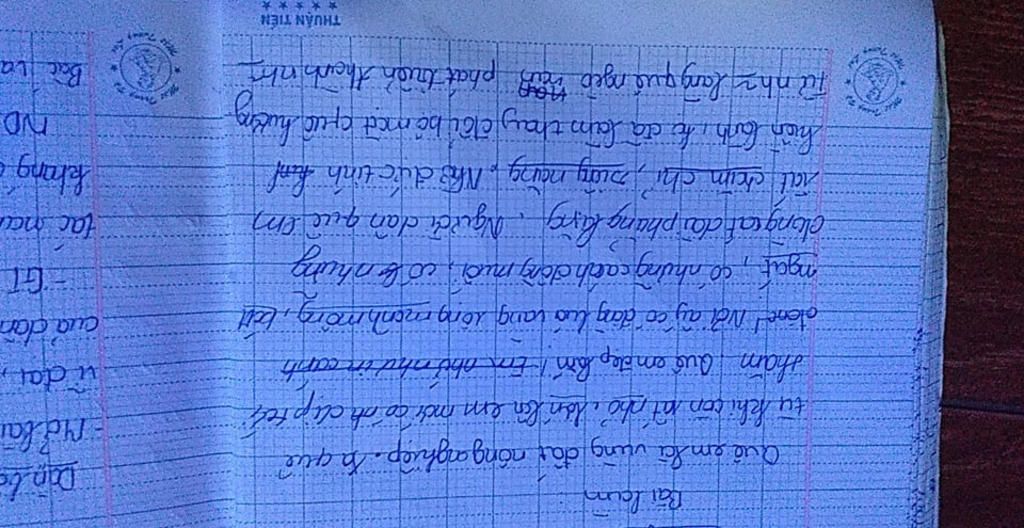 Bài làm
Quê em là vùng đất nông nghiệp. Xa quê
từ khi còn rất nhỏ, lớn lên em mới có dịp tới
thăm. Quê em đẹp lắm! Em nhớ như in cảnh
đêm! Nơi ấy có đồng lúa vàng rộng mênh mông, bát
ngát, có những cánh đồng muối, có những
dòng cát dài phẳng lặng. Người dân quê em
rất chăm chỉ, siêng năng. Nhờ đức tính
hiền lành, họ đã làm thay đổi bộ mặt quê hương
Từ những làng quê nghèo phát triển thành
THUẬN TIẾN
Dàn bà
- Mở bài
vì đại,
của dân
- GT
tác
kháng
ND
Bác và